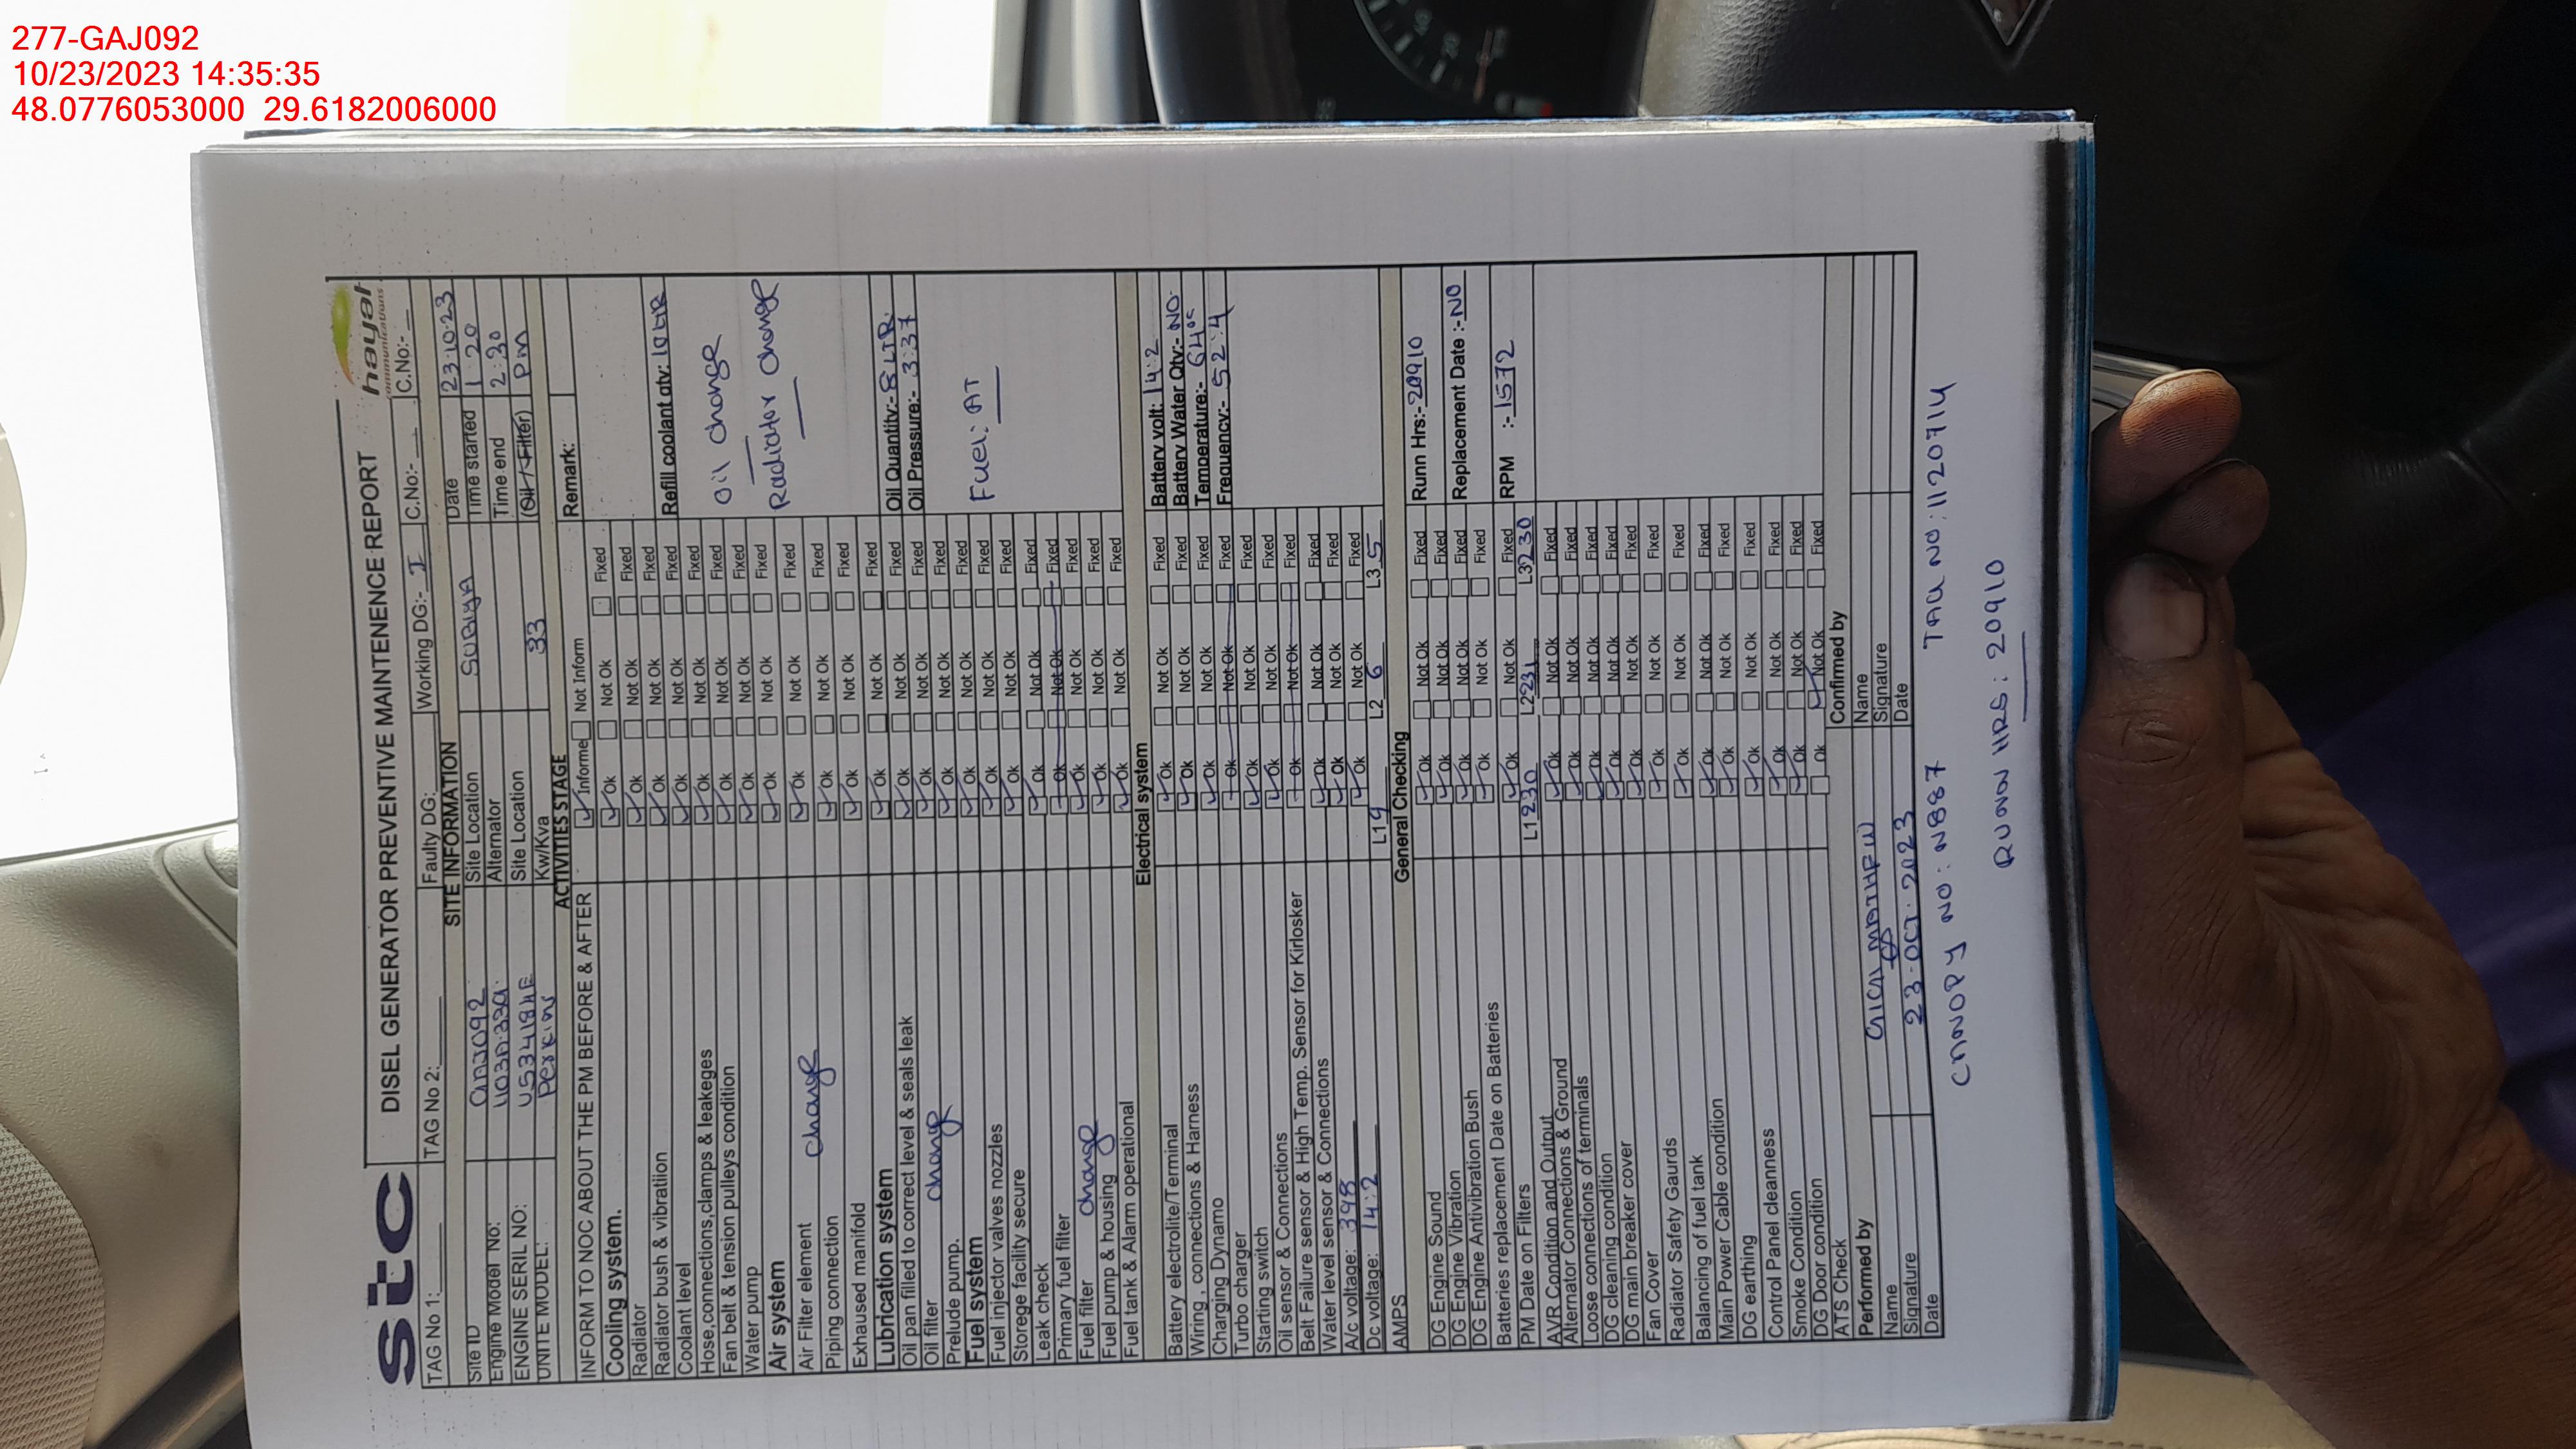 277-GAJ092
10/23/2023 14:35:35
48.0776053000 29.6182006000
stc
DISEL GENERATOR PREVENTIVE MAINTENENCE REPORT
hayat
communications
TAG No 1: TAG No 2: Faulty DG: Working DG:- 1 C.No:- C.No:-
SITE INFORMATION
Site ID GAJ092 Site Location SUBIYA Date 23.10.23
Engine Model No: 403A.33G. Alternator Time started 1:20
ENGINE SERIL NO: U534184E Site Location Time end 2:30
UNITE MODEL: Perkins Kw/Kva 33 (Oil / Filter) PM
ACTIVITIES STAGE Remark:
INFORM TO NOC ABOUT THE PM BEFORE & AFTER Informe Not Inform
Cooling system. Ok Not Ok Fixed
Radiator Ok Not Ok Fixed
Radiator bush & vibratiion Ok Not Ok Fixed
Coolant level Ok Not Ok Fixed Refill coolant qty: 10 LTR
Hose,connections,clamps & leakeges Ok Not Ok Fixed
Fan belt & tension pulleys condition Ok Not Ok Fixed Oil change
Water pump Ok Not Ok Fixed
Air system Ok Not Ok Fixed Radiator change
Air Filter element change Ok Not Ok Fixed
Piping connection Ok Not Ok Fixed
Exhaused manifold Ok Not Ok Fixed
Lubrication system Ok Not Ok Fixed
Oil pan filled to correct level & seals leak Ok Not Ok Fixed Oil Quantity:- 8 LTR
Oil filter change Ok Not Ok Fixed Oil Pressure:- 3:37
Prelude pump. Ok Not Ok Fixed
Fuel system Ok Not Ok Fixed
Fuel injector valves nozzles Ok Not Ok Fixed Fuel: AT
Storege facility secure Ok Not Ok Fixed
Leak check Ok Not Ok Fixed
Primary fuel filter Ok Not Ok Fixed
Fuel filter change Ok Not Ok Fixed
Fuel pump & housing Ok Not Ok Fixed
Fuel tank & Alarm operational Ok Not Ok Fixed
Electrical system
Battery electrolite/Terminal Ok Not Ok Fixed Battery volt: 14:2
Wiring , connections & Harness Ok Not Ok Fixed Battery Water Qty:- NO-
Charging Dynamo Ok Not Ok Fixed Temperature:- 64°c
Turbo charger Ok Not Ok Fixed Frequency:- 52:4
Starting switch Ok Not Ok Fixed
Oil sensor & Connections Ok Not Ok Fixed
Belt Failure sensor & High Temp. Sensor for Kirlosker Ok Not Ok Fixed
Water level sensor & Connections Ok Not Ok Fixed
A/c voltage: 398 Ok Not Ok Fixed
Dc voltage: 14:2 Ok Not Ok Fixed
AMPS L1 9 L2 6 L3 5
General Checking
DG Engine Sound Ok Not Ok Fixed Runn Hrs:- 20910
DG Engine Vibration Ok Not Ok Fixed
DG Engine Antivibration Bush Ok Not Ok Fixed Replacement Date :- NO
Batteries replacement Date on Batteries Ok Not Ok Fixed
PM Date on Filters Ok Not Ok Fixed RPM :- 1572
AVR Condition and Output L1 230 L2 231 L3 230
Alternator Connections & Ground Ok Not Ok Fixed
Loose connections of terminals Ok Not Ok Fixed
DG cleaning condition Ok Not Ok Fixed
DG main breaker cover Ok Not Ok Fixed
Fan Cover Ok Not Ok Fixed
Radiator Safety Gaurds Ok Not Ok Fixed
Balancing of fuel tank Ok Not Ok Fixed
Main Power Cable condition Ok Not Ok Fixed
DG earthing Ok Not Ok Fixed
Control Panel cleanness Ok Not Ok Fixed
Smoke Condition Ok Not Ok Fixed
DG Door condition Ok Not Ok Fixed
ATS Check Ok Not Ok Fixed
Performed by Confirmed by
Name Name
Signature Signature
Date 23-OCT-2023 Date
CANOPY NO: N887 TAG NO: 1120714
RUNN HRS: 20910